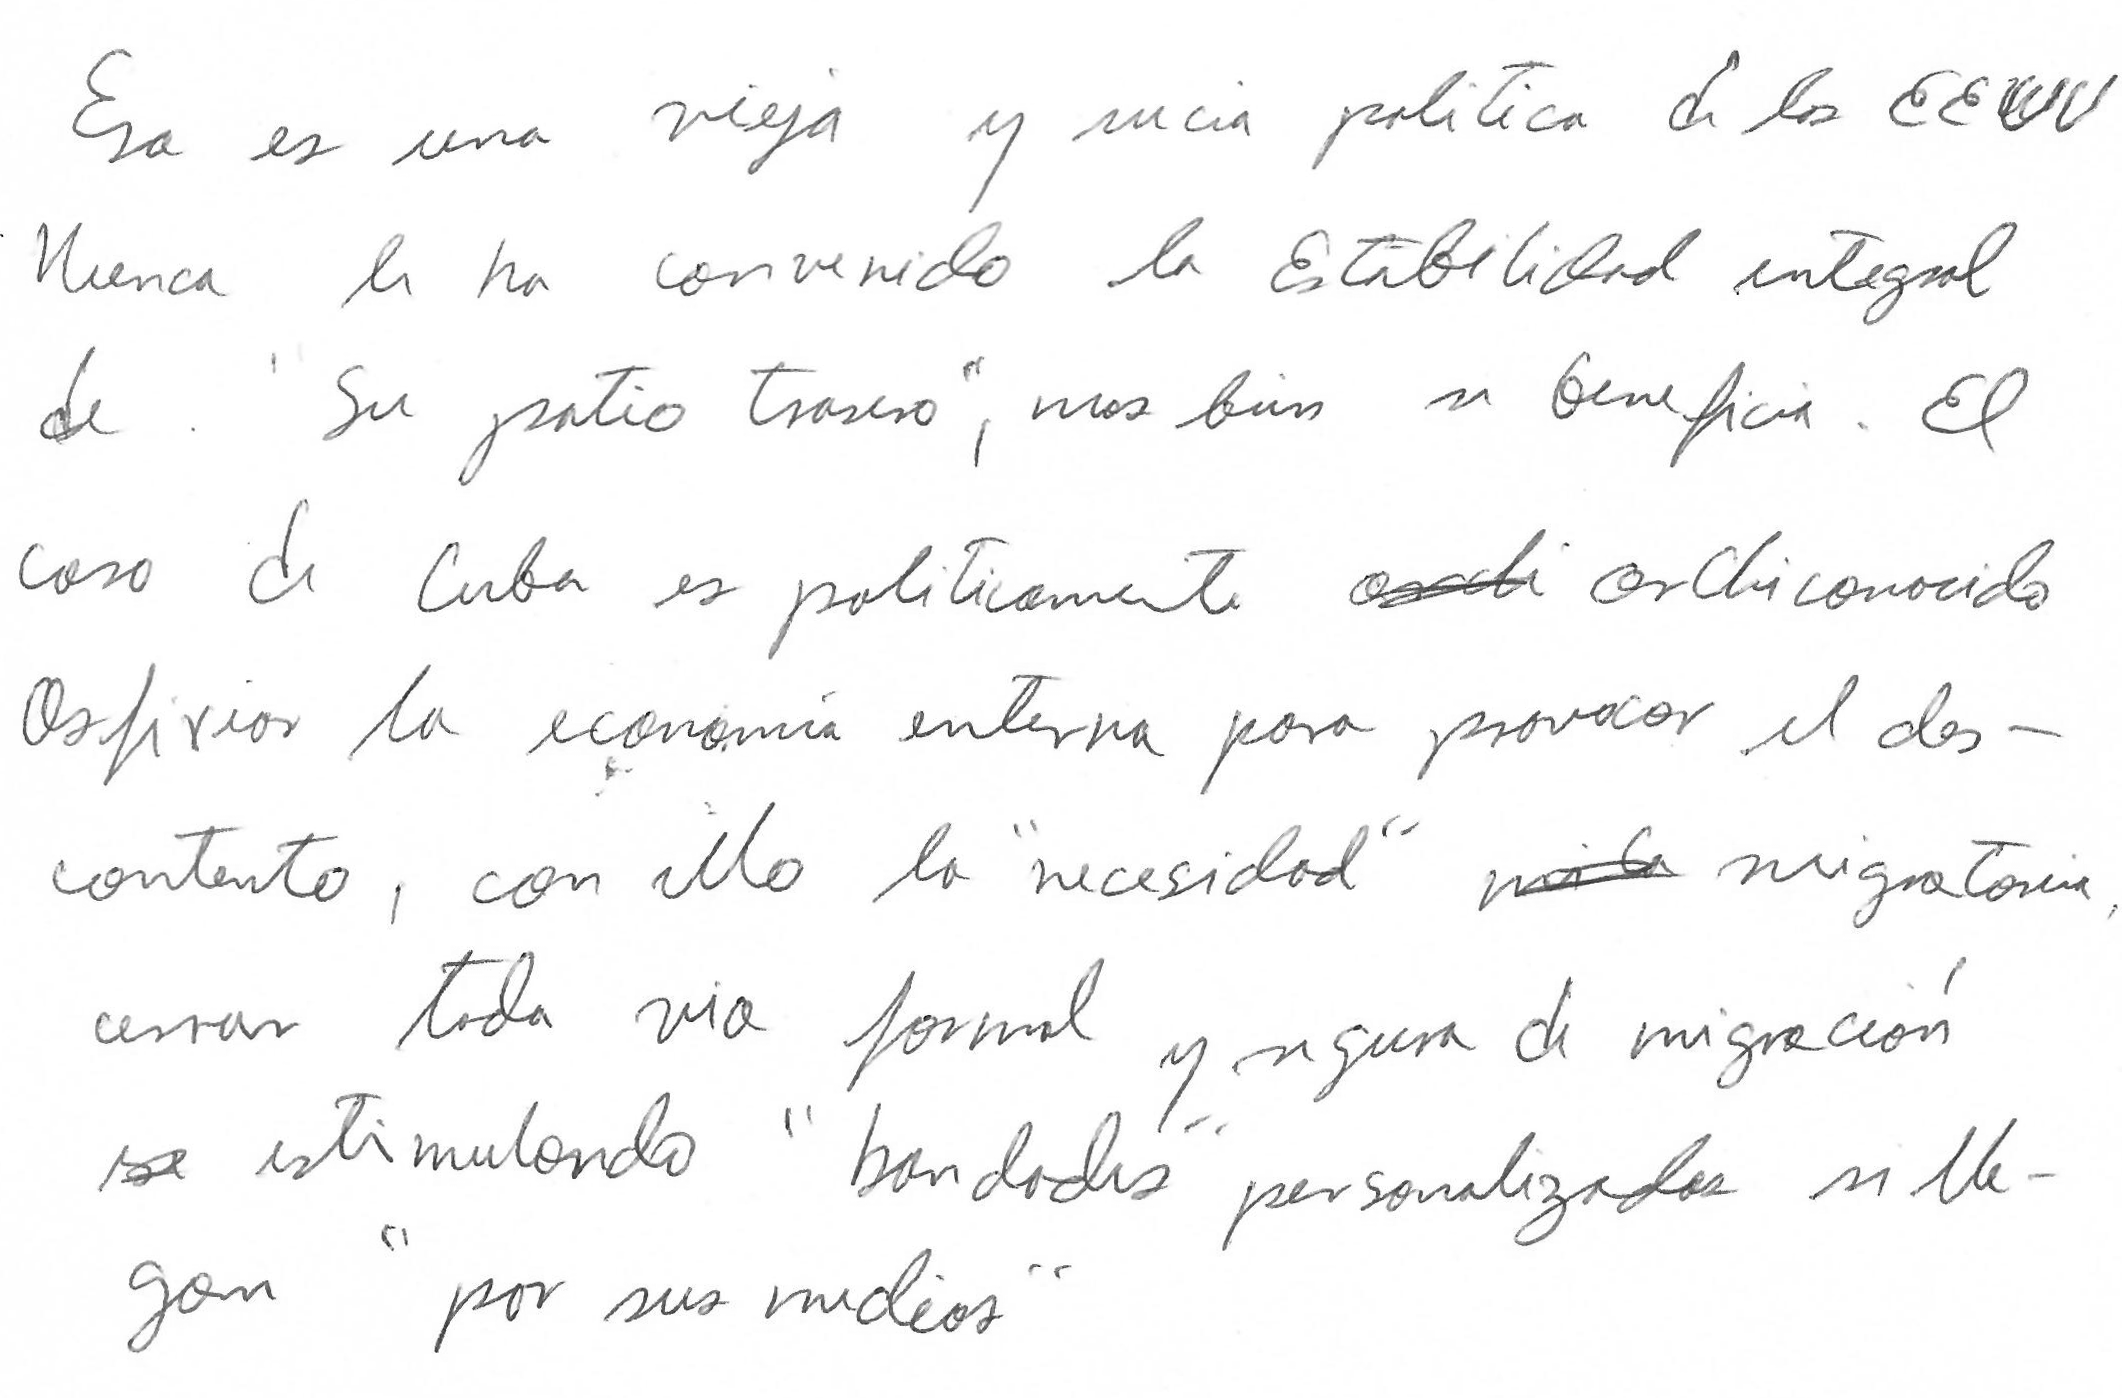 Esa es una vieja y sucia politica de los EEUU
Nunca le ha convenido la Estabilidad integral
de "Su patio trasero", mas bien se beneficia. El
caso de Cuba es politicamente archiconocido
Asfixiar la economía interna para provocar el des-
contento, con ello la "necesidad" migratoria,
cerrar toda via formal y segura de migración
estimulando "bondades" personalizadas si lle-
gan "por sus medios"